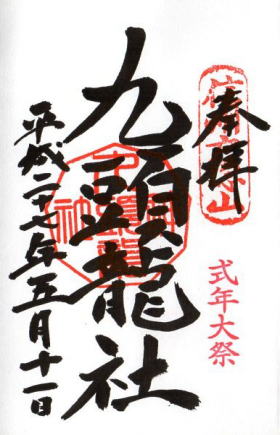 奉拝
式年大祭
九頭龍社
平成二十七年五月十一日